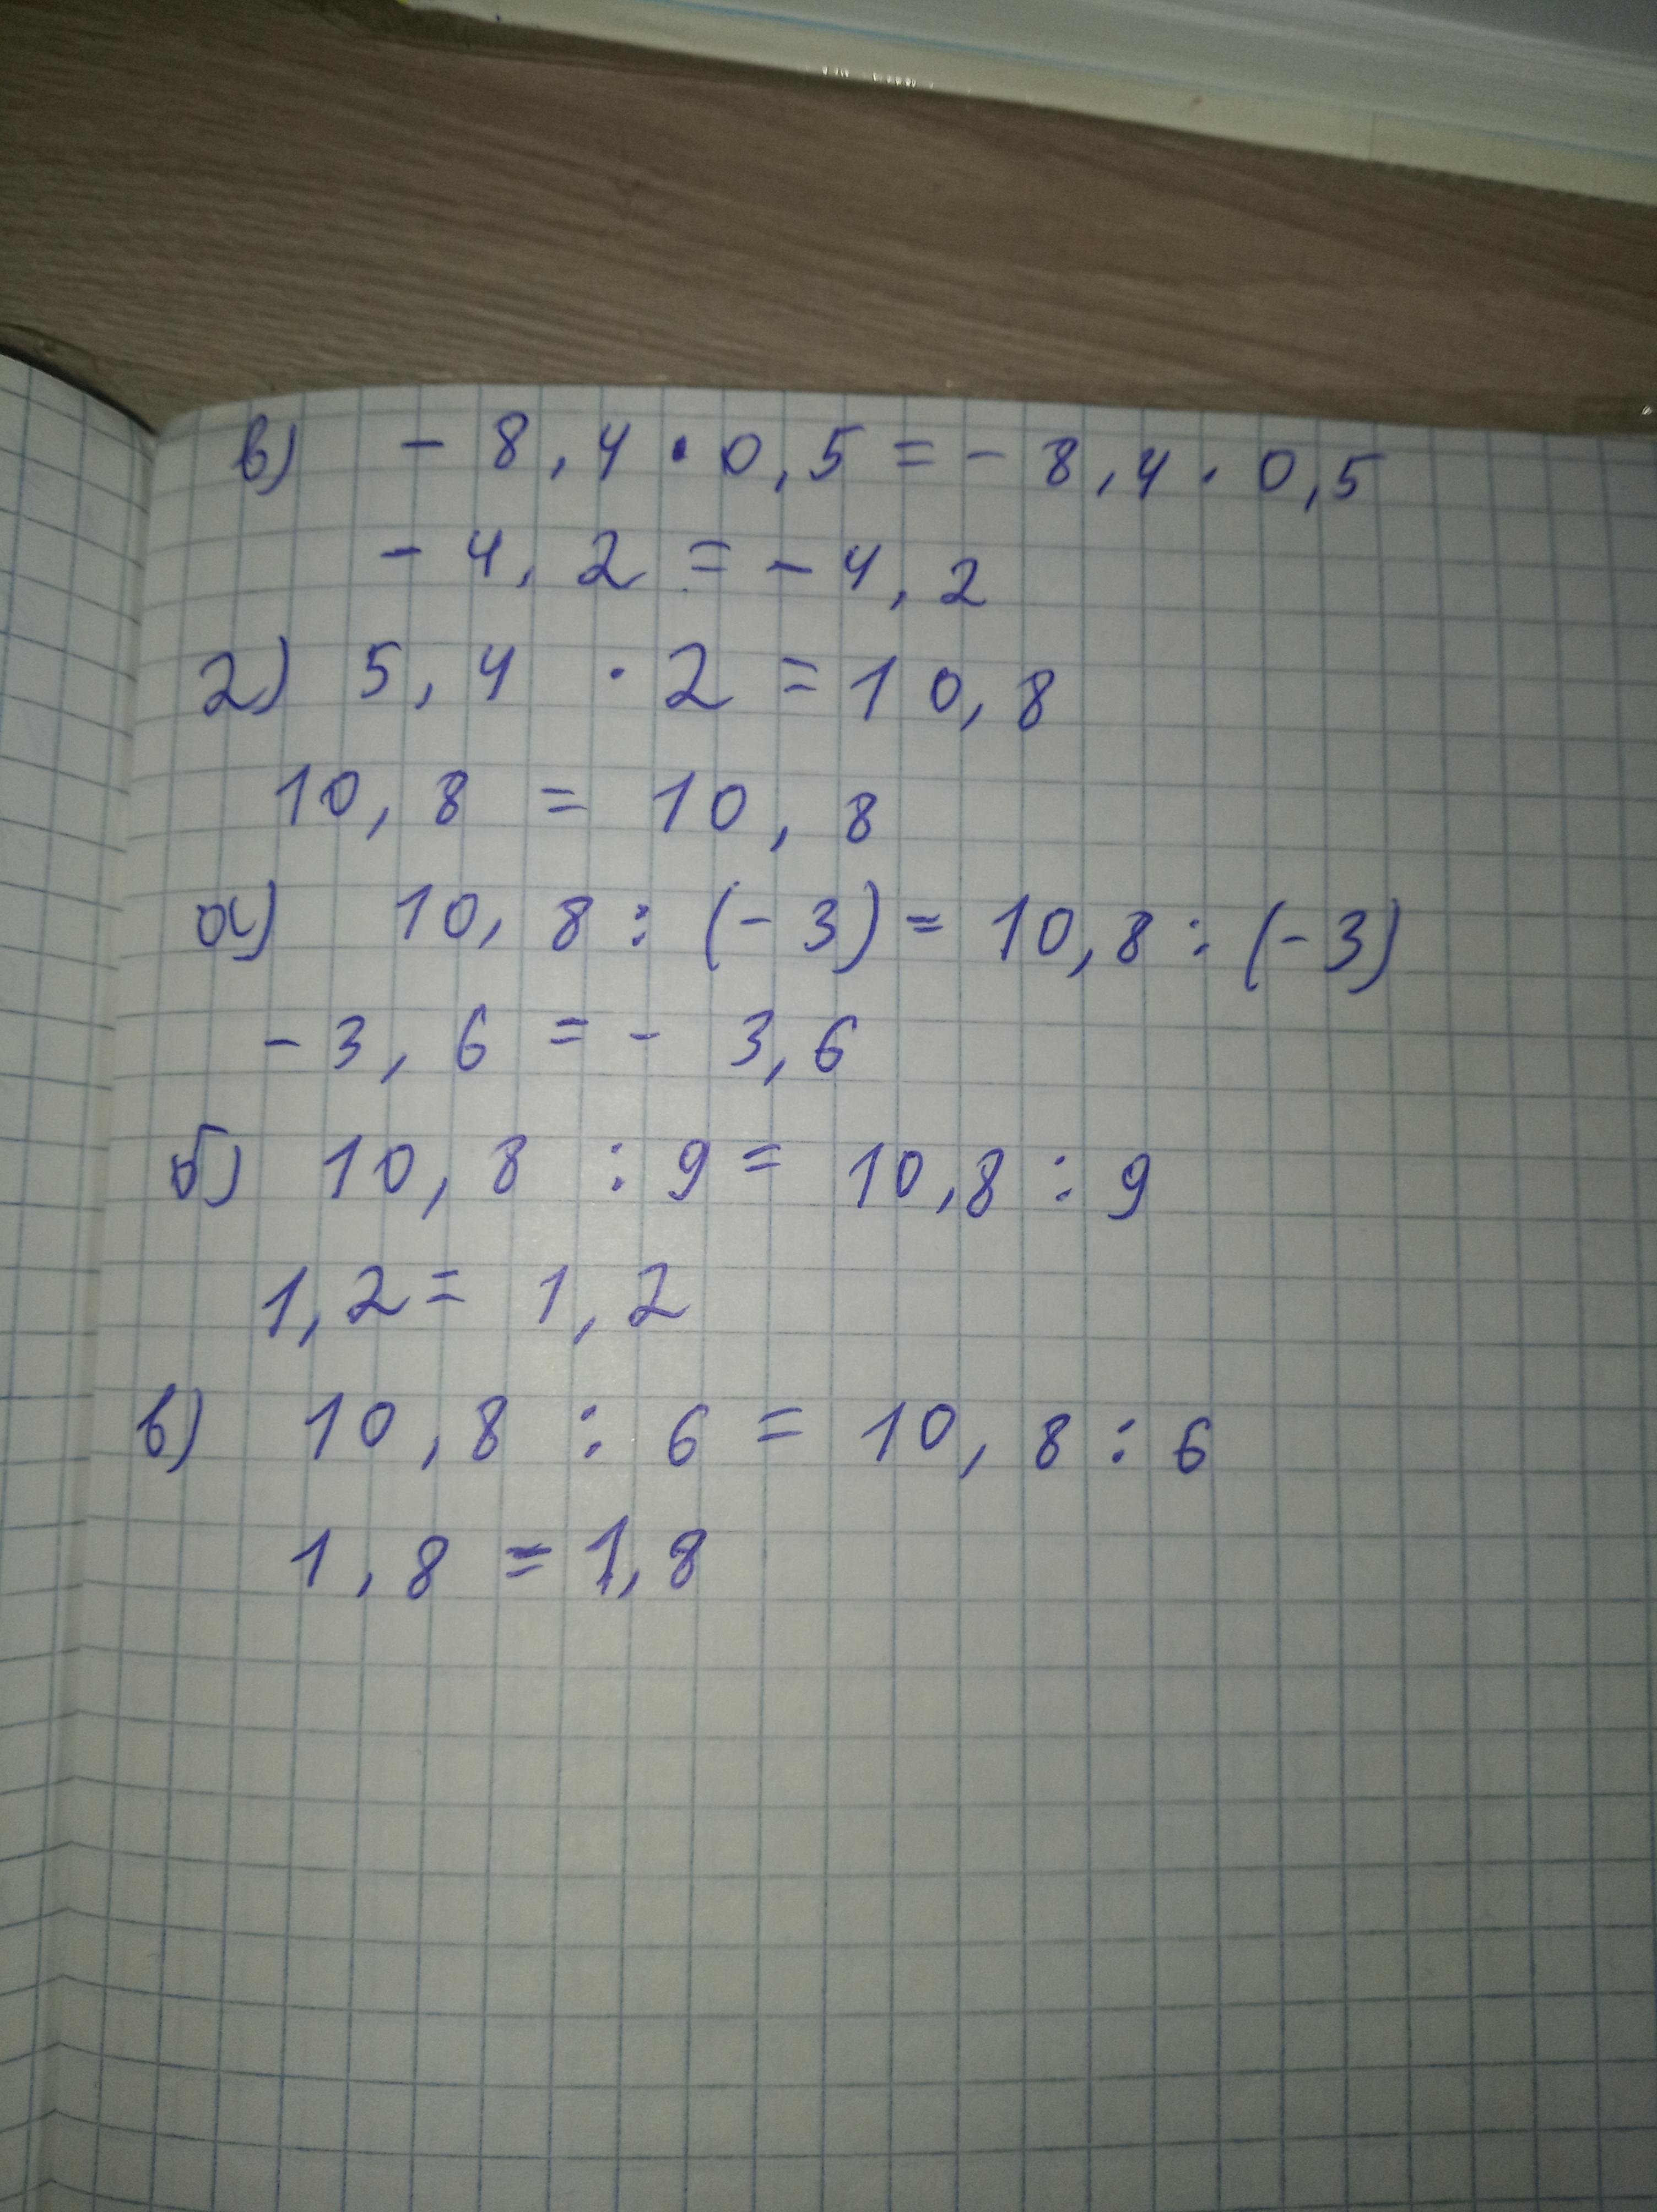 в) - 8,4 · 0,5 = - 8,4 · 0,5
- 4,2 = - 4,2
г) 5,4 · 2 = 10,8
10,8 = 10,8
а) 10,8 : (- 3) = 10,8 : (- 3)
- 3,6 = - 3,6
б) 10,8 : 9 = 10,8 : 9
1,2 = 1,2
в) 10,8 : 6 = 10,8 : 6
1,8 = 1,8